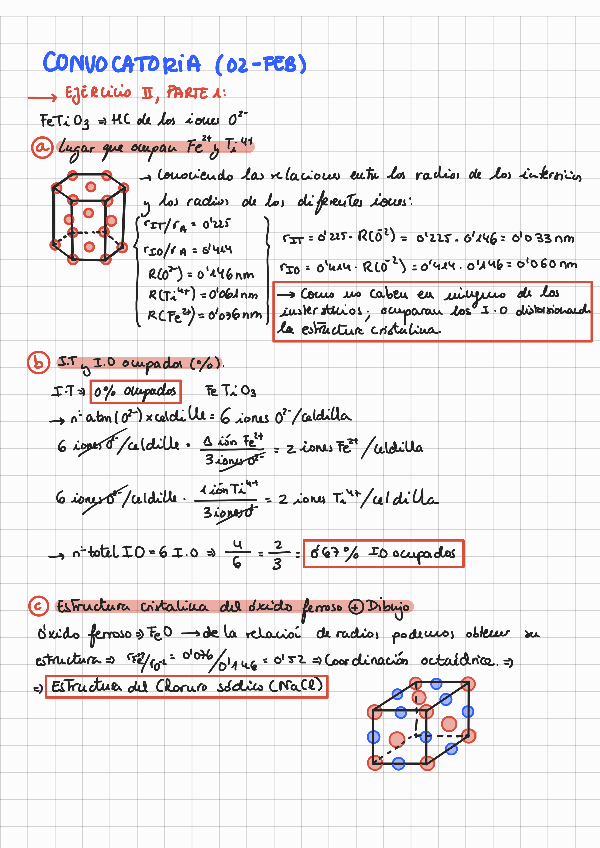 CONVOCATORIA (02-FEB)
→ EJERCICIO II, PARTE 1:
FeTiO3 ⇒ HC de los iones O²⁻
a) Lugar que ocupan Fe²⁺ y Ti⁴⁺
→ Conociendo las relaciones entre los radios de los intersticios
y los radios de los diferentes iones:
rIT/rA = 0'225
rIO/rA = 0'414
R(O²⁻) = 0'146 nm
R(Ti⁴⁺) = 0'061 nm
R(Fe²⁺) = 0'076 nm
rIT = 0'225 · R(O⁻²) = 0'225 · 0'146 = 0'033 nm
rIO = 0'414 · R(O⁻²) = 0'414 · 0'146 = 0'060 nm
→ Como no caben en ninguno de los
intersticios; ocuparan los I.O distorsionando
la estructura cristalina.
b) I.T y I.O ocupados (%).
I.T ⇒ 0% ocupados FeTiO3
→ nº atm (O²⁻) x celdille = 6 iones O²⁻/celdilla
6 iones O²⁻/celdille · 1 ión Fe²⁺ / 3 iones O²⁻ = 2 iones Fe²⁺/celdilla
6 iones O²⁻/celdille · 1 ión Ti⁴⁺ / 3 iones O⁼ = 2 iones Ti⁴⁺/celdilla
→ nº total IO = 6 I.O ⇒ 4/6 = 2/3 = 0'67% IO ocupados
c) Estructura cristalina del óxido ferroso ⊕ Dibujo
Óxido ferroso ⇒ FeO → de la relación de radios podemos obtener su
estructura ⇒ rFe²⁺/rO²⁻ = 0'076/0'146 = 0'52 ⇒ Coordinación octaédrica ⇒
⇒ Estructura del Cloruro sódico (NaCl)